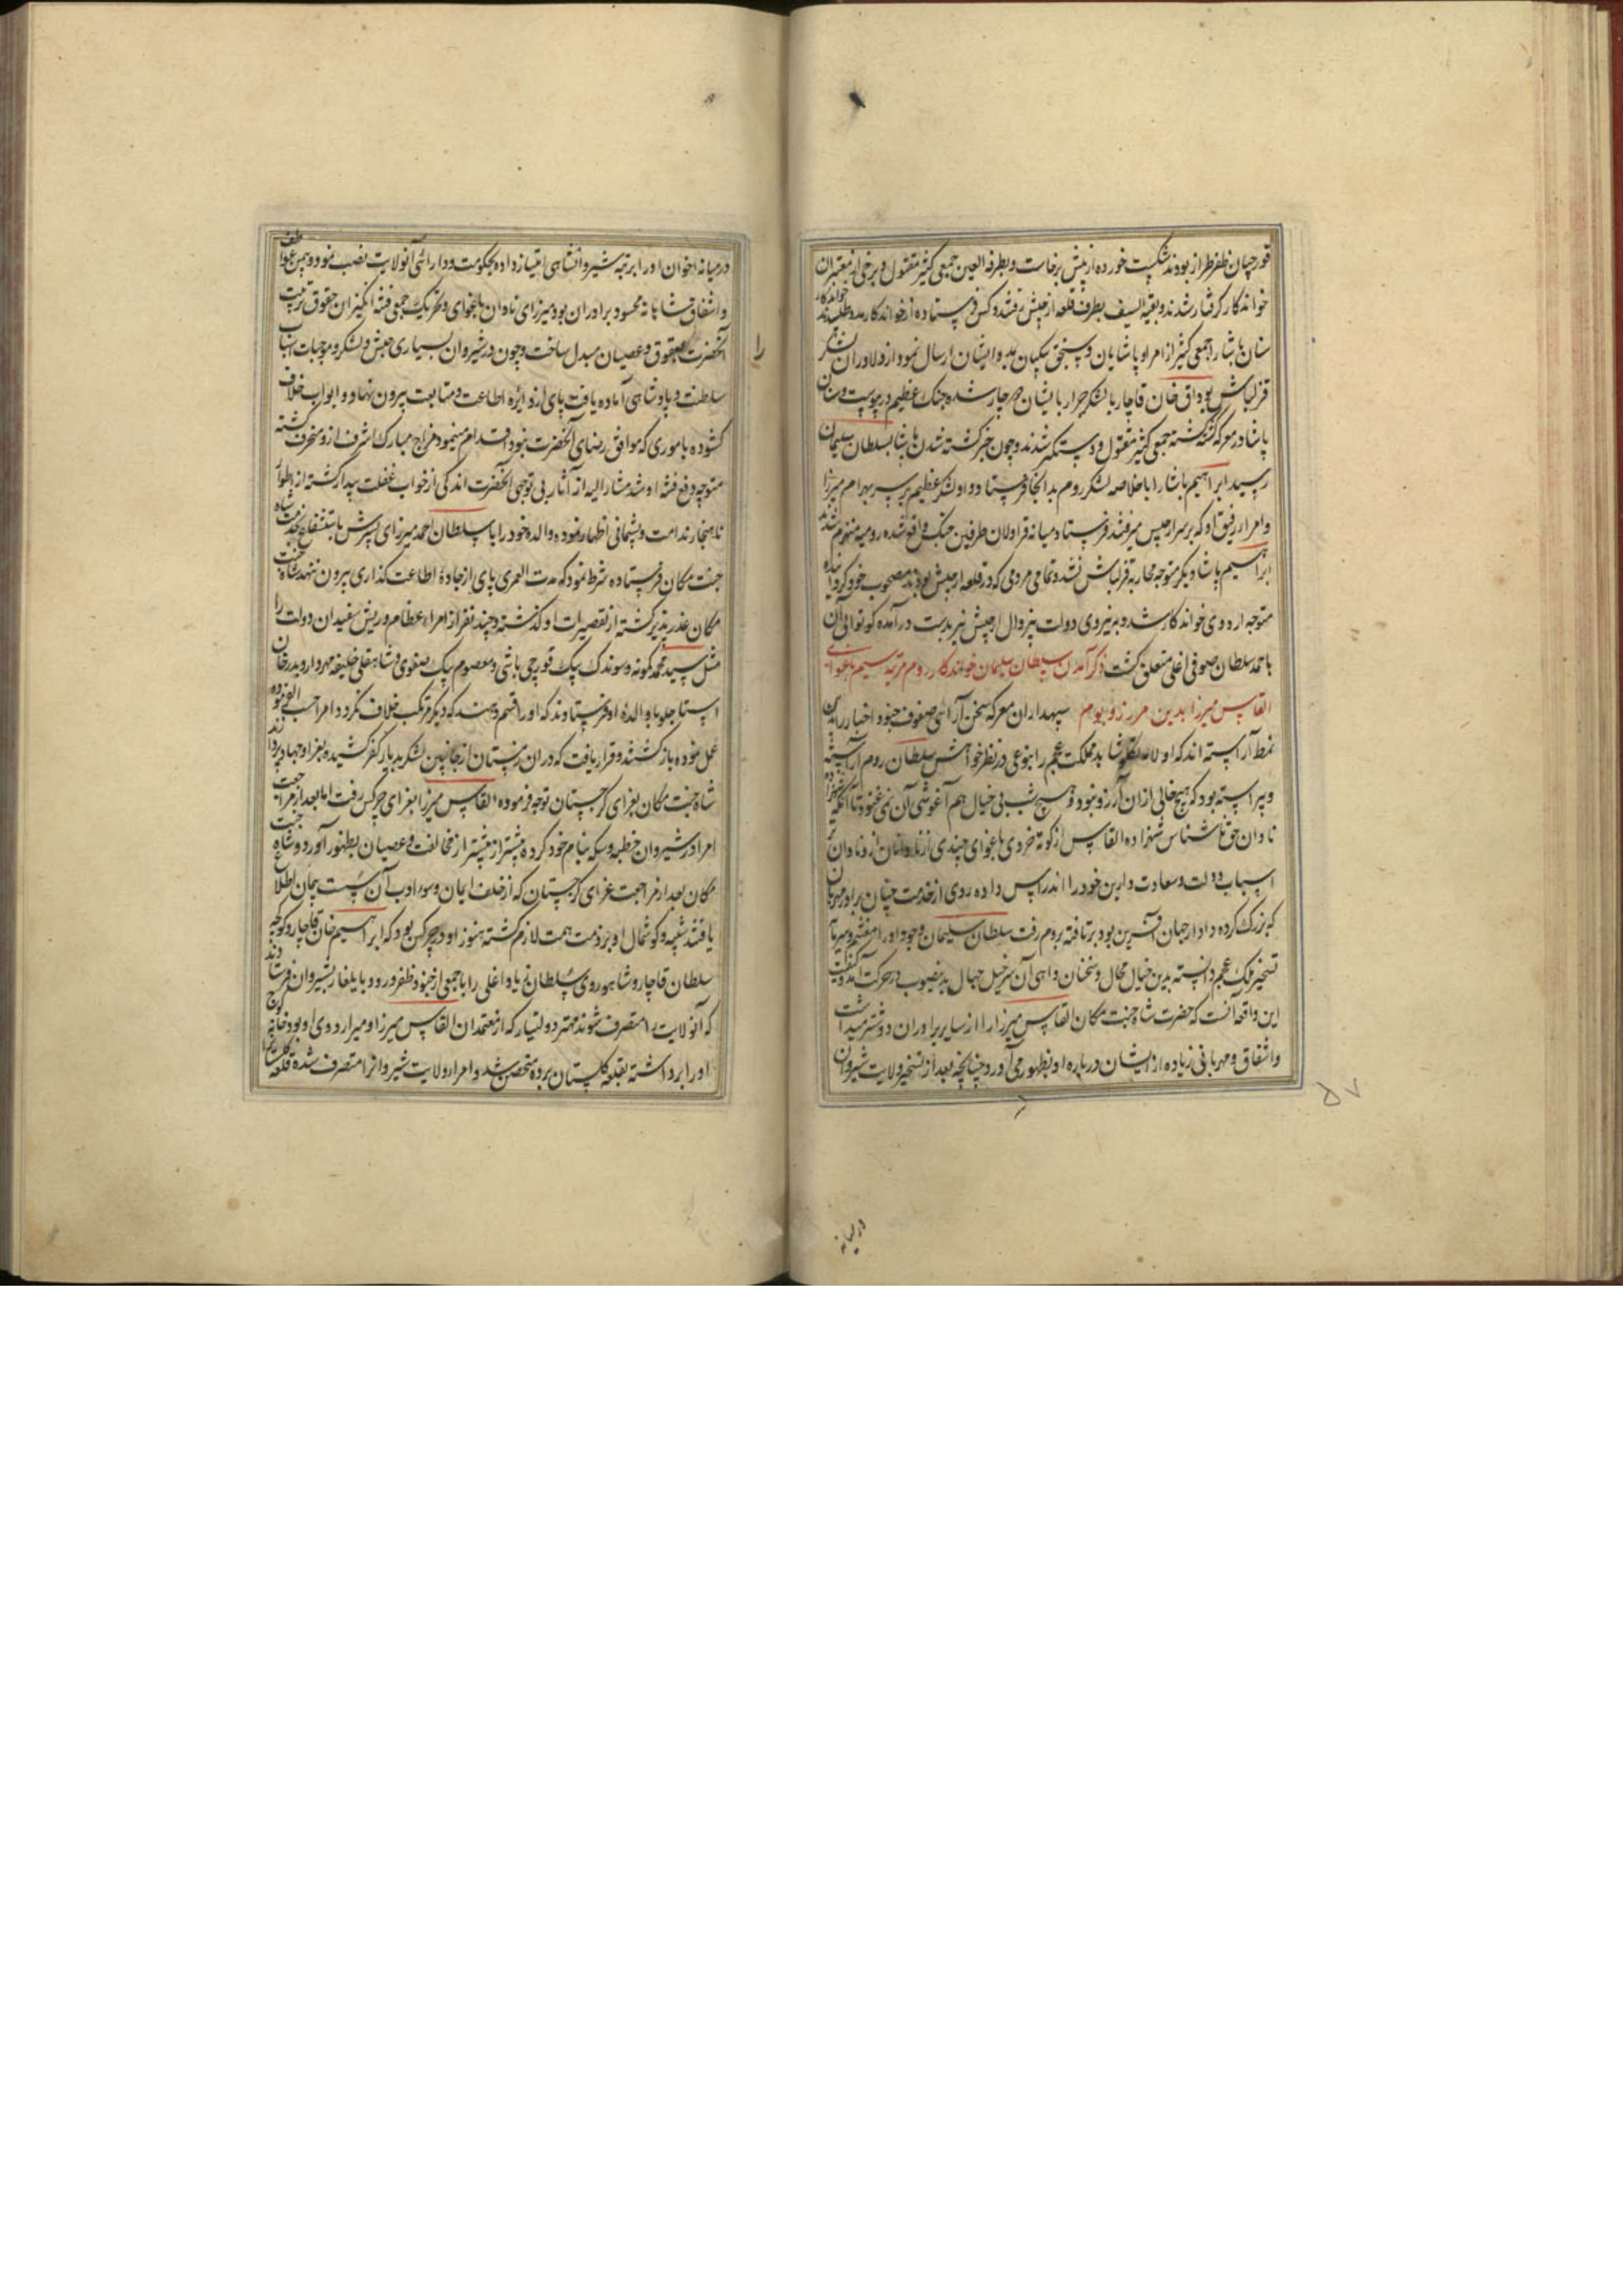 قورچیان ظفر طراز بودند شکست خورده از پیش برخاست و بطرفة العین جمعی کثیر مقتول و برخی از معتبران
خواندکار گرفتار شدند و بقیة السیف بطرف قلعه ارجیش رفتند و کس فرستاده از خواندکار مدد طلبیدند خواندکار
سنان پاشا را با جمعی کثیر از امرا و پاشایان و سنجق بیکیان بمدد ایشان ارسال نمود از دلاوران لشکر
قزلباش بوداق خان قاجار با لشکر جرار بایشان دوچار شده جنک عظیم در پیوست و سنان
پاشا در معرکه کشته کشته جمعی کثیر مقتول و دستگیر شدند و چون خبر کشته شدن پاشا بسلطان سلیمان
رسید ابراهیم پاشا را با خلاصه لشکر روم بدانجا فرستاد و او لشکر عظیم بر سر بهرام میرزا
و امراء رفیق او که بر سر ارجیس میرفتند فرستاد و میانه قراولان طرفین جنک واقع شده رومیه منهزم شدند
ابراهیم پاشا دیکر متوجه محاربه قزلباش نشد و تمامی مردمی که در قلعه ارجیش بودند مصحوب خود کردانیده
متوجه اردوی خواندکار شد و بنیروی دولت بیزوال ارجیش نیز بدست درآمده کوتوالی آن
باحمد سلطان صوفی اغلی متعلق کشت ذکر آمدن سلطان سلیمان خواندکار روم مرتبه سیم باغوای
القاس میرزا بدین مرز و بوم سپهداران معرکه سخن آرائی صفوف جنود اخبار را بدین
نمط آراسته اند که اولا شاهد مملکت عجم را بنوعی در نظر خواهش سلطان روم آراسته
و پیراسته بود که هیچ خالی از آن آرزو نبود و هیچ شب بی خیال هم آغوشی آن نمی غنود تا آنکه شهزاده
نادان حق ناشناس شهزاده القاس از کوته خردی باغوای چندی از نادانان از و نادان تر
اسباب دولت و سعادت دارین خود را اندراس داده روی از خدمت چنان برادر مهربان
که بزرک کرده دادار جهان آفرین بود برتافته بروم رفت سلطان سلیمان وجود او را مغتنم و سرمایه
تسخیر ملک عجم دانسته بدین خیال محال و سخنان واهی آن سرخیل جهال بدینصوب در حرکت آمد و کیفیت
این واقعه آنست که حضرت شاه جنت مکان القاس میرزا را از سایر برادران دوستر میداشت
و اشفاق و مهربانی زیاده از ایشان درباره او بظهور می آورد چنانچه بعد از تسخیر ولایت شیروان
در میانه
۵۷
در میانه اخوان او را برتبه شیروانشاهی امتیاز داده بحکومت و دارائی آنولایت نصب نمود و بهمین عواطف
و اشفاق شاهانه محسود برادران بود میرزای نادان باغوای و تحریک جمعی فتنه انگیزان حقوق تربیت
آنحضرت را بعقوق و عصیان مبدل ساخت و چون در شیروان بسیاری جیش و لشکر و موجبات اسباب
سلطنت و پادشاهی آماده یافت پای از دایره اطاعت و متابعت بیرون نهاد و ابواب خلاف
کشوده باموری که موافق رضای آنحضرت نبود اقدام مینمود مزاج مبارک اشرف ازو منحرف کشته
متوجه دفع فتنه او شد مشار الیه از آثار بی توجهی آنحضرت اندکی از خواب غفلت بیدار کشته از اطوار
ناهنجار ندامت و پشیمانی اظهار نموده والده خود را با سلطان احمد میرزای پسرش باستشفاع بخدمت شاه
جنت مکان فرستاده شرط نمود که مدت العمری پای از جادۀ اطاعت کذاری بیرون ننهد شاه جنت
مکان عذر پذیر کشته از تقصیرات او کذشته و چند نفر از امراء عظام و ریش سفیدان دولت را
مثل سید محمد کمونه و سوندک بیک قورچی باشی و معصوم بیک صفوی و شاهقلی خلیفه مهردار و بدر خان
استاجلو با والدۀ او فرستادند که او را قسم دهند که دیکر مرتکب خلاف نکردد امرا حسب الفرموده
عمل نموده باز کشتند و قرار یافت که در آن زمستان از جانبین لشکر بدیار کفر کشیده بغزا و جهاد پردازند
شاه جنت مکان بغزای کرجستان توجه فرموده القاس میرزا بغزای چرکس رفت اما بعد از مراجعت
امرا در شیروان خطبه و سکه بنام خود کرده بیشتر از پیشتر از مخالفت و عصیان بظهور آورد و شاه جنت
مکان بعد از مراجعت غزای کرجستان که از خلف ایمان و سوء ادب آن سست پیمان اطلاع
یافتند تنبیه و کوشمال او بر ذمت همت لازم کشته هنوز او در چرکس بود که ابراهیم خان قاجار و کوکجه
سلطان قاجار و شاهوردی سلطان زیاد اغلی را با جمعی از جنود ظفر ورود بایلغار بشیروان فرستادند
که آنولایت را متصرف شوند مهتر دولتیار که از معتمدان القاس میرزا و میر اردوی او بود خانه کوچ
او را برداشته بقلعه کلستان برده متحصن شد و امرا ولایت شیروانرا متصرف شده قلعه کلستانرا